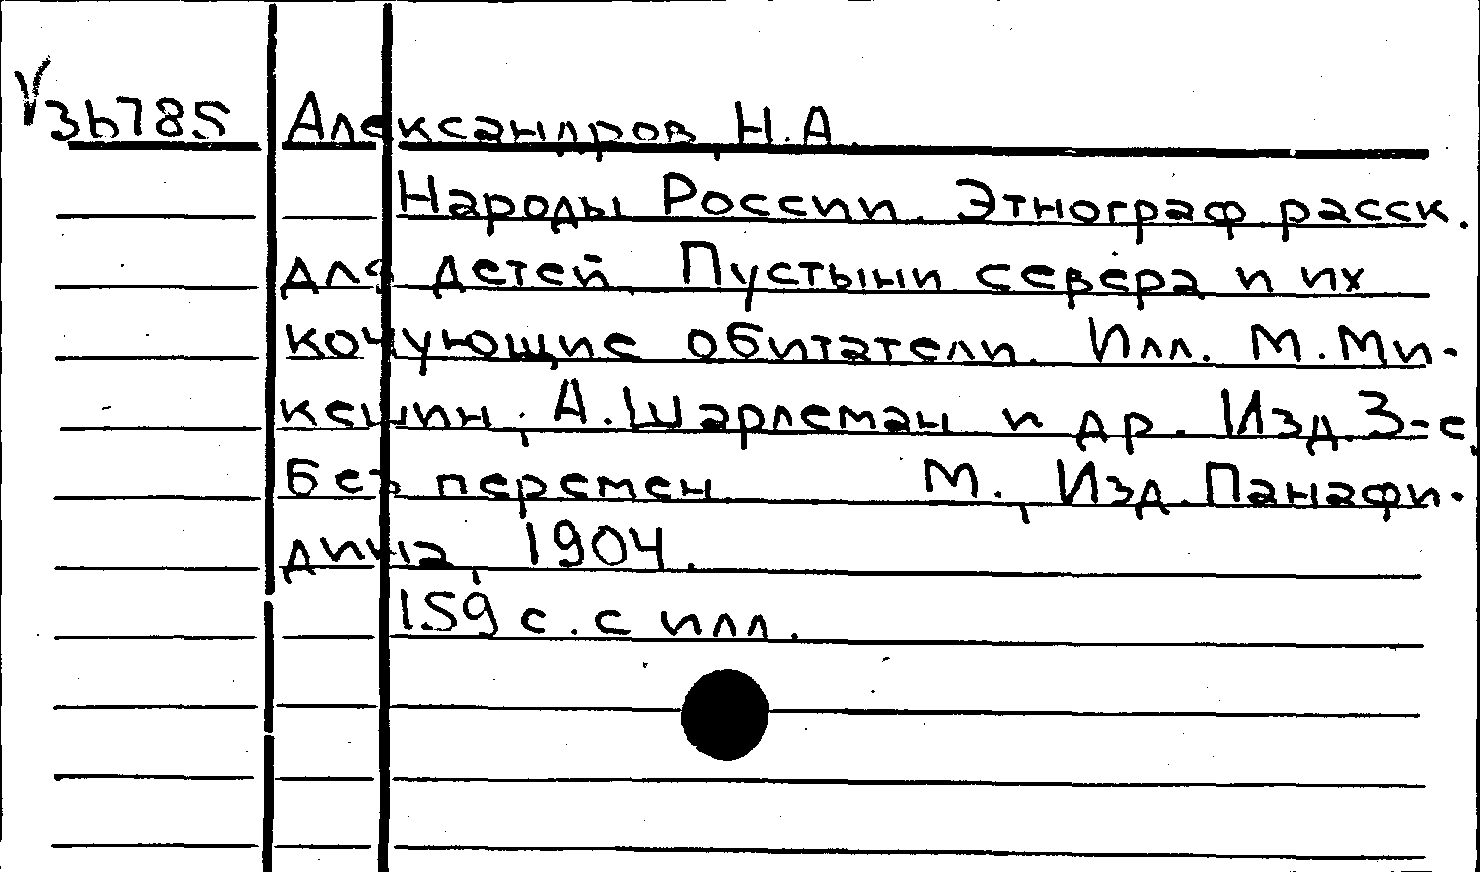 V 3b785 Александров, Н.А.
Народы России. Этнограф. расск.
для детей. Пустыни севера и их
кочующие обитатели. Илл. М. Ми-
кешин, А. Шарлеман и др. Изд. 3-е,
без перемен. М., Изд. Панафи-
дина, 1904.
159 с. с илл.